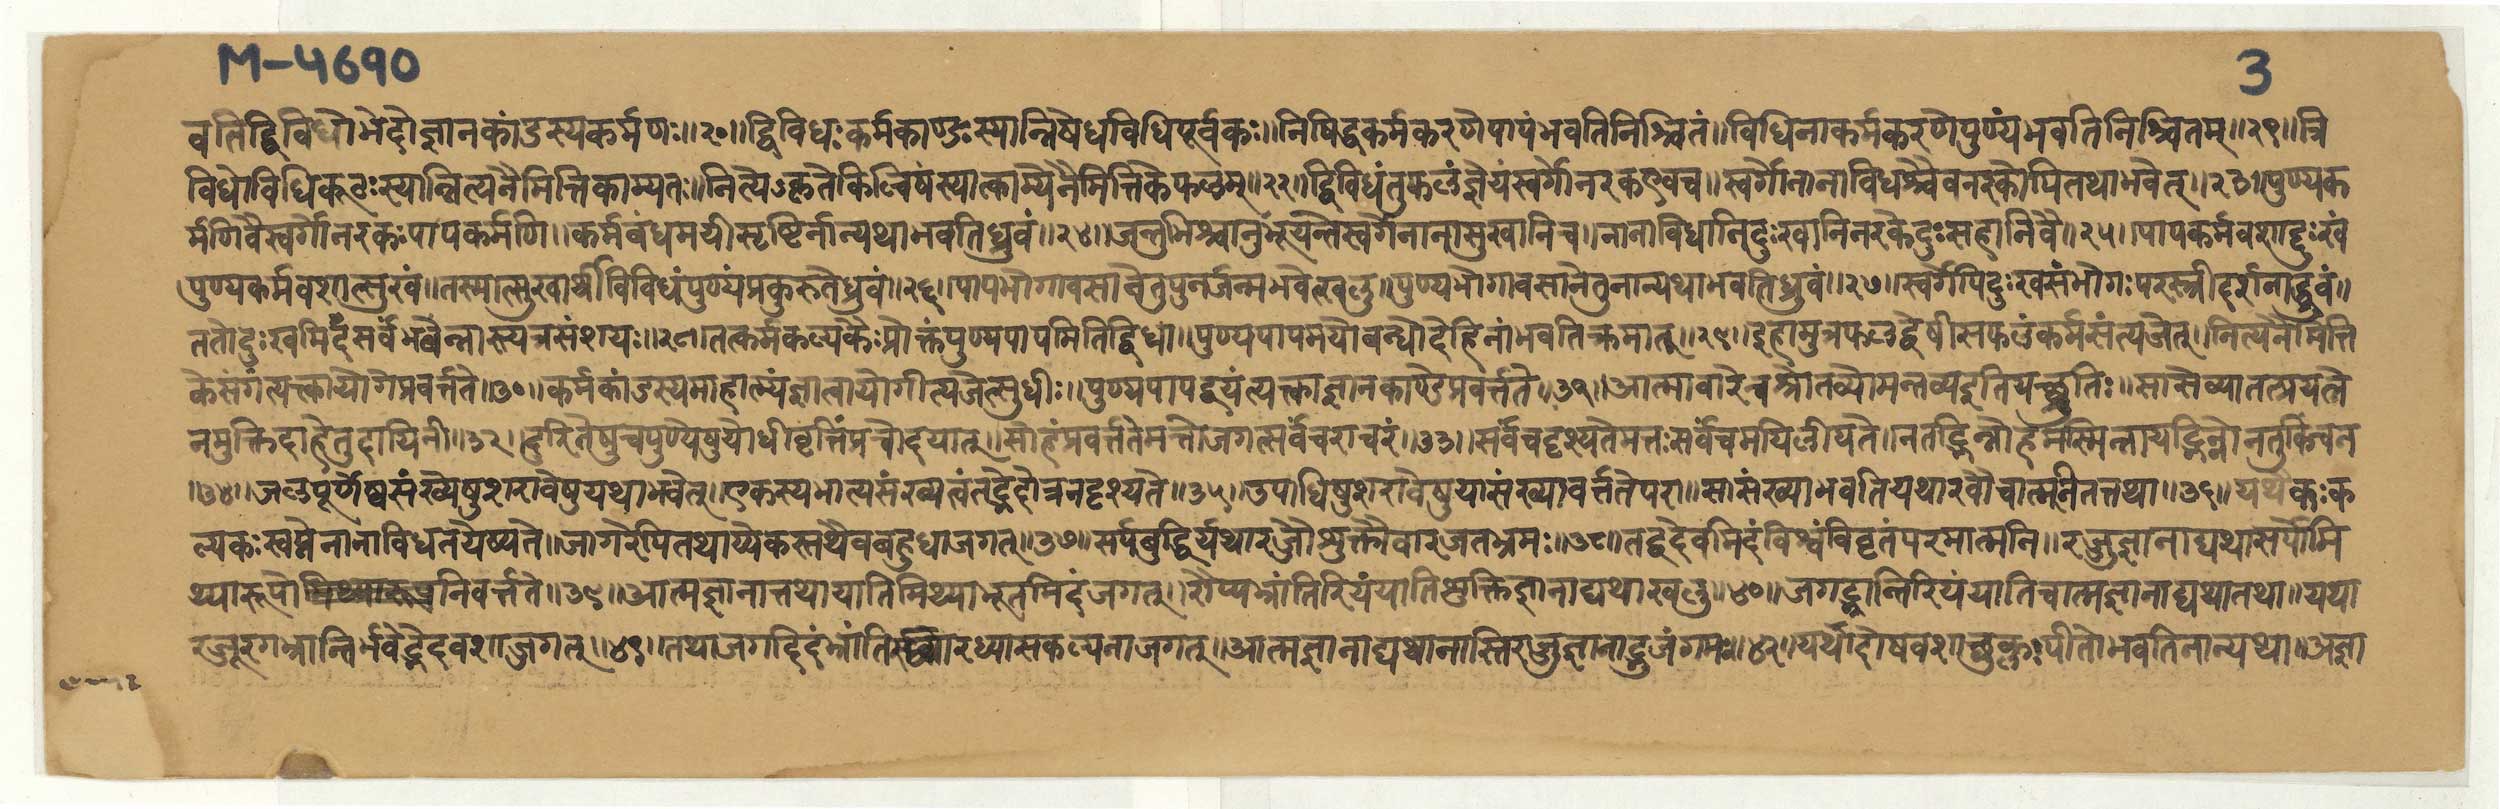 M-५६१०
3
वतिद्विविधोभेदोज्ञानकांडस्यकर्मणः॥२०॥द्विविधःकर्मकाण्डःस्यान्निषेधविधिपूर्वकः॥निषिद्धकर्मकरणेपापंभवतिनिश्चितं॥विधिनाकर्मकरणेपुण्यंभवतिनिश्चितम्॥२१॥त्रि
विधोविधिकूटःस्यान्नित्यनैमित्तिकाम्यतः॥नित्येऽकृतेकिल्बिषंस्यात्काम्येनैमित्तिकेफलम्॥२२॥द्विविधंतुफलंज्ञेयंस्वर्गोनरकएवच॥स्वर्गोनानाविधश्चैवनरकोपितथाभवेत्॥२३॥पुण्यक
र्मणिवैस्वर्गोनरकःपापकर्मणि॥कर्मबंधमयीसृष्टिर्नान्यथाभवतिध्रुवं॥२४॥जन्तुभिश्चानुभूयन्तेस्वर्गेनानासुखानिच॥नानाविधानिदुःखानिनरकेदुःसहानिवै॥२५॥पापकर्मवशाद्दुःखं
पुण्यकर्मवशात्सुखं॥तस्मात्सुखार्थीविविधंपुण्यंप्रकुरुतेध्रुवं॥२६॥पापभोगावसानेतुपुनर्जन्मभवेत्खलु॥पुण्यभोगावसानेतुनान्यथाभवतिध्रुवं॥२७॥स्वर्गेपिदुःखसंभोगःपरस्त्रीदर्शनाद्ध्रुवं॥
ततोदुःखमिदंसर्वंभवेन्नास्त्यत्रसंशयः॥२८॥तत्कर्मकल्पकैःप्रोक्तंपुण्यपापमितिद्विधा॥पुण्यपापमयोबन्धोदेहिनांभवतिक्रमात्॥२९॥इहामुत्रफलद्वेषीसफलंकर्मसंत्यजेत्॥नित्यनैमित्ति
केसंगंत्यक्त्वायोगेप्रवर्त्तते॥३०॥कर्मकांडस्यमाहात्म्यंज्ञात्वायोगीत्यजेत्सुधीः॥पुण्यपापद्वयंत्यक्त्वाज्ञानकाण्डेप्रवर्त्तते॥३१॥आत्मावारेचश्रोतव्योमन्तव्यइतियच्छ्रुतिः॥सासेव्यातत्प्रयत्ने
नमुक्तिदाहेतुदायिनी॥३२॥दुरितेषुचपुण्येषुयोधीवृत्तिंप्रचोदयात्॥सोहंप्रवर्त्ततेमत्तोजगत्सर्वंचराचरं॥३३॥सर्वंचदृश्यतेमत्तःसर्वंचमयिलीयते॥नतद्भिन्नोहमस्मिन्नोयद्भिन्नोनतुकिंचन
॥३४॥जलपूर्णेष्वसंख्येषुशरावेषुयथाभवेत्॥एकस्यभात्यसंख्यत्वंतद्भेदोत्रनदृश्यते॥३५॥उपाधिषुशरावेषुयासंख्यावर्त्ततेपरा॥सासंख्याभवतियथारवौचात्मनितत्तथा॥३६॥यथैकःक
ल्पकःस्वप्नेनानाविधतयेष्यते॥जागरेपितथाप्येकस्तथैवबहुधाजगत्॥३७॥सर्पबुद्धिर्यथारज्जौशुक्तौवारजतभ्रमः॥३८॥तद्वदेवमिदंविश्वंविवृतंपरमात्मनि॥रज्जुज्ञानाद्यथासर्पोमि
थ्यारूपोनिवर्त्तते॥३९॥आत्मज्ञानात्तथायातिमिथ्याभूतमिदंजगत्॥रौप्यभ्रांतिरियंयातिशुक्तिज्ञानाद्यथाखलु॥४०॥जगद्भ्रान्तिरियंयातिचात्मज्ञानाद्यथातथा॥यथा
रज्जूरगभ्रान्तिर्भवेद्भेदवशाज्जगत्॥४१॥तथाजगदिदंभ्रांतिरध्यासकल्पनाजगत्॥आत्मज्ञानाद्यथानास्तिरज्जुज्ञानाद्भुजंगमः॥४२॥यथादोषवशाच्छुक्लःपीतोभवतिनान्यथा॥अज्ञा